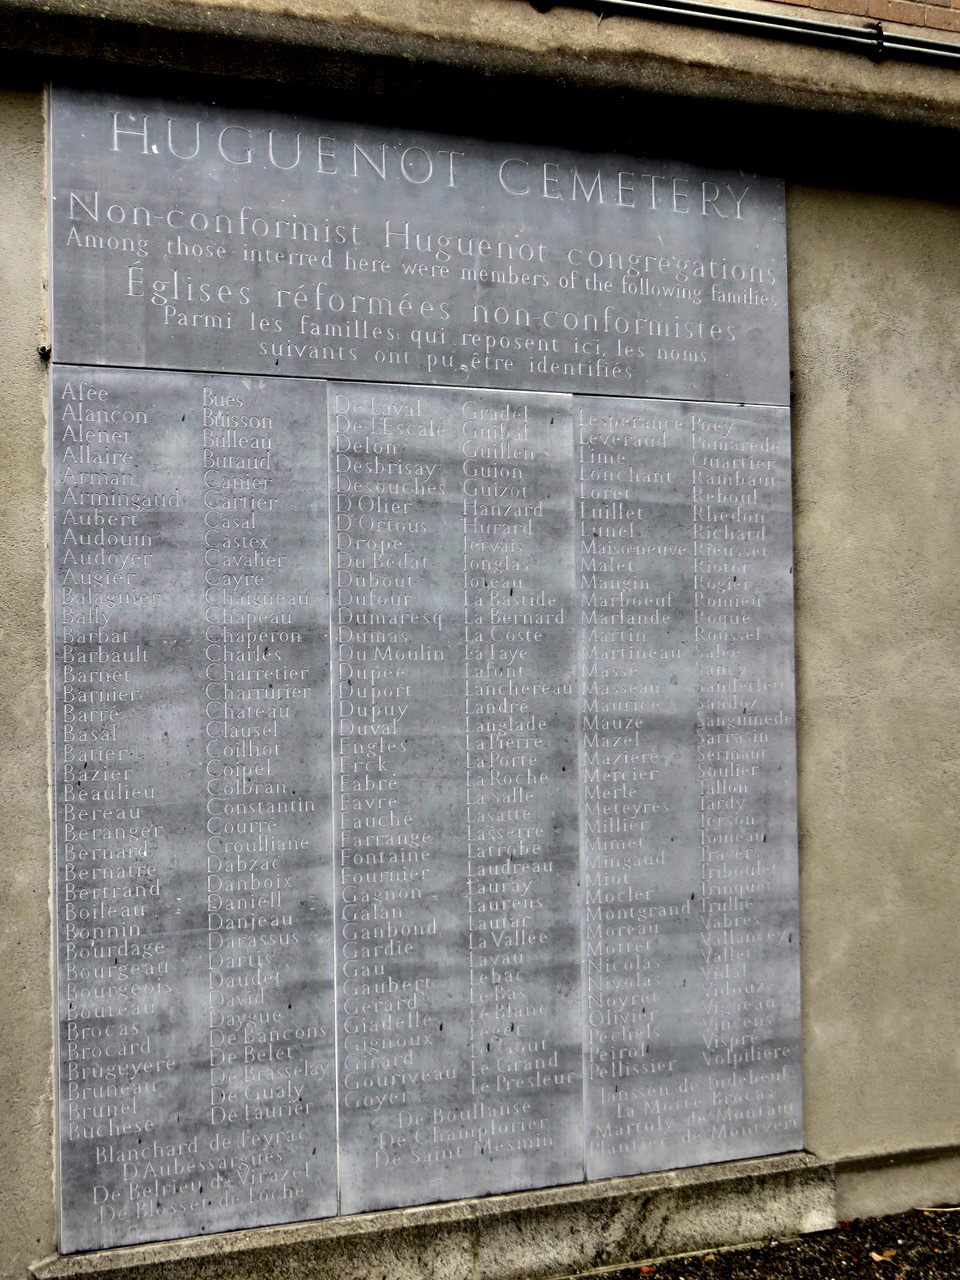 HUGUENOT CEMETERY
Non-conformist Huguenot congregations
Among those interred here were members of the following families
Églises réformées non-conformistes
Parmi les familles qui reposent ici, les noms
suivants ont pu être identifiés
Afée
Alancon
Alenet
Allaire
Arman
Armingaud
Aubert
Audouin
Audoyer
Augier
Balaguier
Bally
Barbat
Barbault
Barnet
Barnier
Barré
Basal
Batier
Bazier
Beaulieu
Bereau
Beranger
Bernard
Bernatre
Bertrand
Boileau
Bonnin
Bourdage
Bourgeau
Bourgeois
Boureau
Brocas
Brocard
Bruguyere
Bruneau
Brunel
Buchese
Bues
Buisson
Bulleau
Butaud
Canier
Cartier
Casal
Castex
Cavalier
Cayre
Chaigneau
Chapeau
Chaperon
Charles
Charretier
Charrurier
Chateau
Clausel
Coilhot
Coipel
Colbran
Constantin
Courre
Croulliane
Dabzac
Danboix
Daniell
Danjeau
Darassus
Darus
Daudet
David
Daygue
De Bancons
De Belet
De Brasselay
De Gualy
De Laurier
Blanchard de Feyrac
D'Aubessargues
De Belrieu de Virazel
De Blosset de Loche
De Laval
De L'Escale
Delon
Desbrisay
Desouches
D'Olier
D'Ortous
Drope
Du Bedat
Dubout
Dufour
Dumaresq
Dumas
Du Moulin
Dupee
Duport
Dupuy
Duval
Engles
Erck
Fabre
Favre
Fauche
Farrange
Fontaine
Fournier
Gagnon
Galan
Ganbond
Gardie
Gau
Gaubert
Gerard
Giadelle
Gignoux
Girard
Gouriveau
Goyer
Gradel
Guibal
Guillen
Guion
Guizot
Hanzard
Hurard
Jervais
Jonglas
Joteau
La Bastide
La Bernard
La Coste
La Faye
Lafont
Lanchereau
Landre
Langlade
La Pierre
La Porte
La Roche
La Salle
Lasatte
Lasserre
Latrobe
Laudreau
Lauray
Laurens
Lautar
La Vallée
Lavau
Lebat
Le Bas
Le Blanc
Leger
Le Gout
Le Grand
Le Presleur
De Boullanse
De Champlorier
De Saint Mesmin
Lesperance
Leveraud
Lime
Lonchant
Loret
Luillet
Lunel
Maisoneuve
Malet
Mangin
Marboeuf
Marlande
Martin
Martineau
Masse
Masseau
Maurice
Mauzé
Mazel
Maziere
Mercier
Merle
Meteyres
Millier
Mimet
Mingaud
Miot
Mocler
Montgrand
Moreau
Mottet
Nicolas
Nivolas
Noyret
Olivier
Pechels
Peirol
Pellissier
Poey
Pomarede
Quartier
Rambaut
Reboul
Rhedon
Richard
Rieusset
Riotor
Rogier
Romieu
Roque
Roussel
Salée
Sancy
Sandoz
Sanguinede
Sarrasin
Sermant
Soulier
Tallon
Tardy
Terson
Tomeau
Travers
Triboulet
Trinquet
Trullie
Vabres
Vallancey
Vallet
Vidal
Vidouze
Vigneau
Vincens
Vispre
Volpiliere
Janssen de Tudebeuf
La Motte Brocas
Martoly de Montaut
Plantier de Montvert